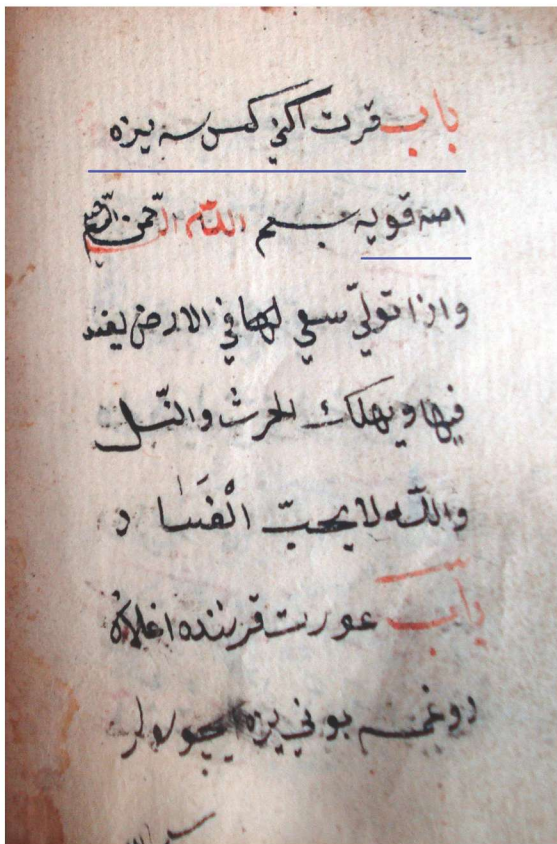 باب قرت اكني كسسه يزه
اصه قويه بسم الله الرّحمن الرّحيم
واذا تولّي سعي لها في الارض ليفسد
فيها ويهلك الحرث والنّسل
واللّه لا يحبّ الْفَسَا د
باب عورت قرننده اغلان
دوغمسه بوني يزه ايچوره لر